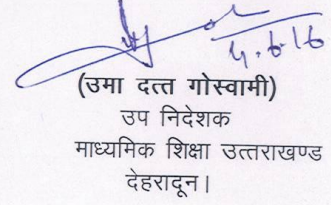 4.6.16
(उमा दत्त गोस्वामी)
उप निदेशक
माध्यमिक शिक्षा उत्तराखण्ड
देहरादून।